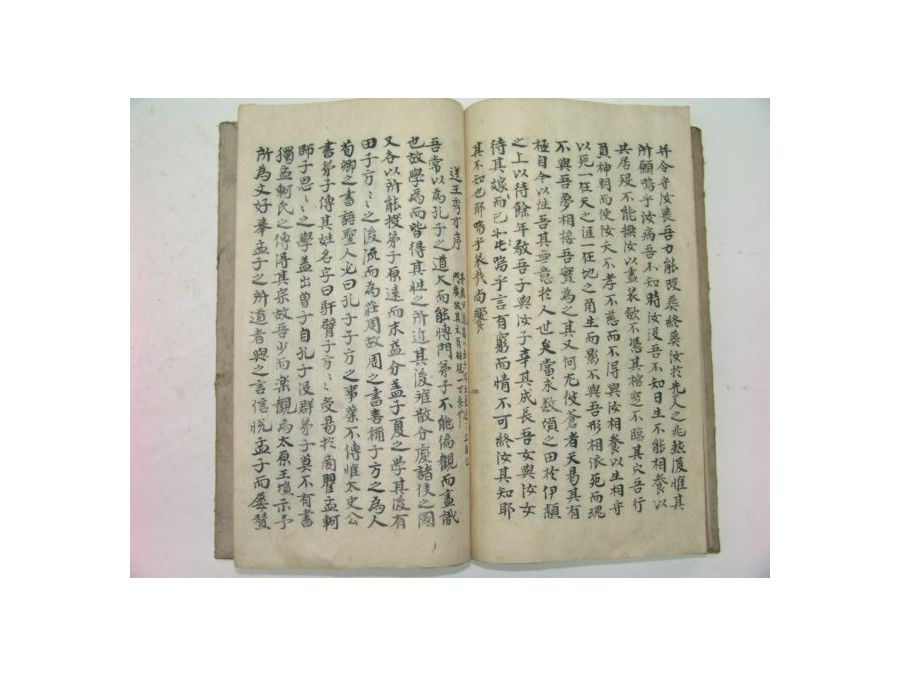 并令守汝喪吾力能改葬終葬汝於先人之兆然後惟其
所願嗚乎汝病吾不知時汝沒吾不知日生不能相養以
共居歿不能撫汝以盡哀歛不憑其棺窆不臨其穴吾行
負神明而使汝夭不孝不慈而不得與汝相養以生相守
以死一在天之涯一在地之角生而影不與吾形相依死而魂
不與吾夢相接吾實為之其又何尤彼蒼者天曷其有
極自今以往吾其無意於人世矣當求數頃之田於伊潁
之上以待餘年教吾子與汝子幸其成長吾女與汝女
待其嫁而已此嗚乎言有窮而情不可終汝其知耶
其不知也耶嗚乎哀哉尚饗
送王秀才序
吾常以為孔子之道大而能博門弟子不能徧觀而盡識
也故學焉而皆得其性之所近其後離散分處諸侯之國
又各以所能授弟子原遠而末益分盖子夏之學其後有
田子方子方之後流而為莊周故周之書喜稱子方之為人
荀卿之書語聖人必曰孔子子方之事業不傳惟太史公
書弟子傳其姓名字曰馯臂子方子方受易於商瞿孟軻
師子思子思之學盖出曾子自孔子沒群弟子莫不有書
獨孟軻氏之傳得其宗故吾少而楽觀焉太原王塤示予
所為文好擧孟子之所道者與之言信脫孟子而屢贊